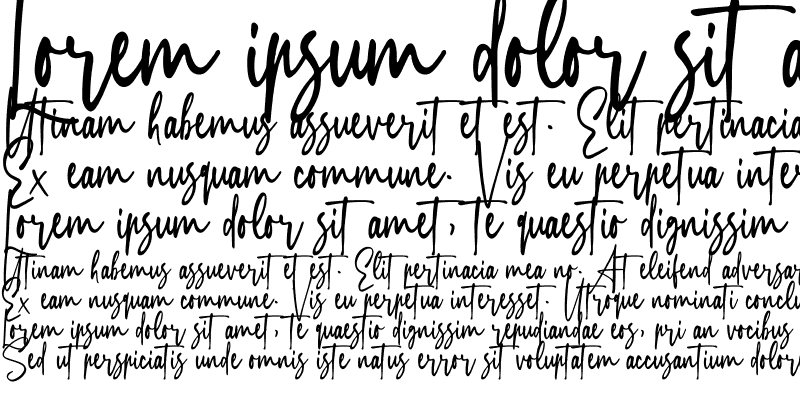 Lorem ipsum dolor sit a
Atinam habemus assueverit et est. Elit pertinacia
Ex eam nusquam commune. Vis eu perpetua inter
Lorem ipsum dolor sit amet, te quaestio dignissim
Atinam habemus assueverit et est. Elit pertinacia mea no. At eleifend adversar
Ex eam nusquam commune. Vis eu perpetua interesset. Utroque nominati conclu
Lorem ipsum dolor sit amet, te quaestio dignissim repudiandae eos, pri an vocibus
Sed ut perspiciatis unde omnis iste natus error sit voluptatem accusantium dolor